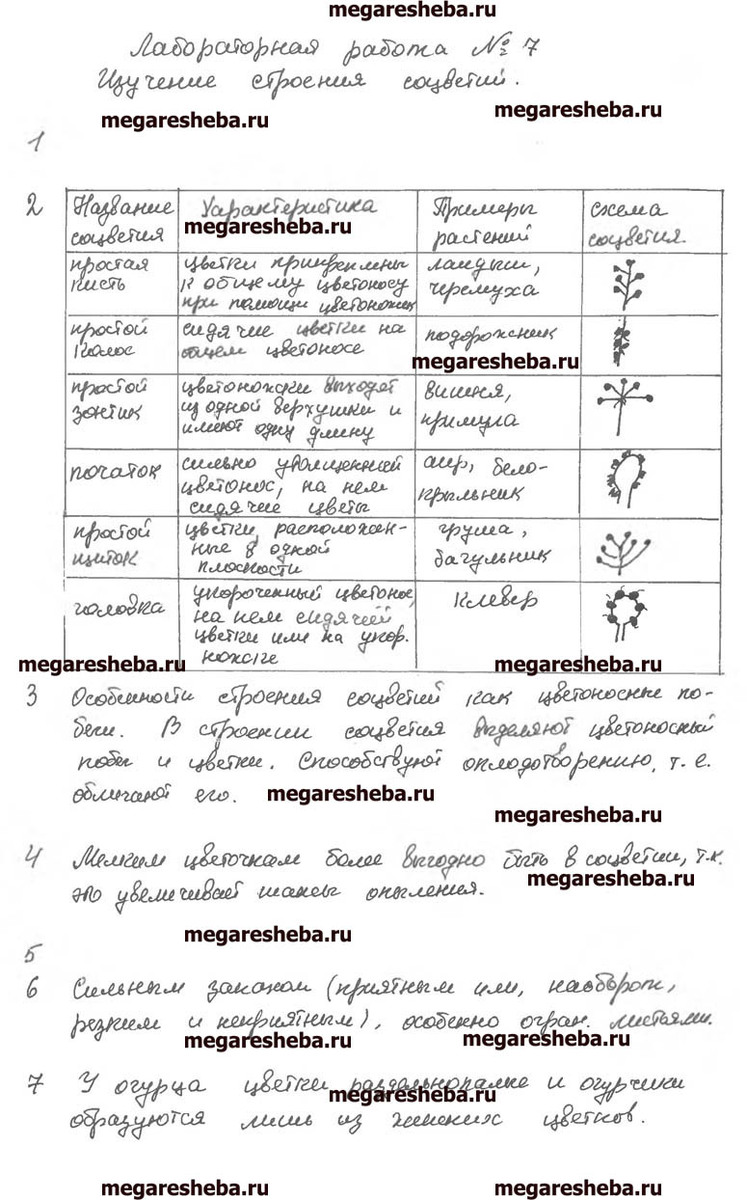 megaresheba.ru
Лабораторная работа № 7
Изучение строения соцветий.
megaresheba.ru
megaresheba.ru
1
2
Название соцветия
Характеристика
megaresheba.ru
Примеры растений
схема соцветия.
простая кисть
цветки прикреплены
к общему цветоносу
при помощи цветоножек
ландыш,
черемуха
простой колос
сидячие цветки на
общем цветоносе
подорожник
megaresheba.ru
простой зонтик
цветоножки выходят
из одной верхушки и
имеют одну длину
вишня,
примула
початок
сильно утолщенный
цветонос, на нем
сидячие цветы
аир, бело-
крыльник
простой щиток
цветки, расположен-
ные в одной
плоскости
груша,
багульник
головка
укороченный цветонос,
на нем сидячий
цветки или на укор.
ножке
клевер
megaresheba.ru
megaresheba.ru
3 Особенности строения соцветий как цветоносные по-
беги. В строении соцветия выделяют цветоносный
побег и цветки. Способствуют оплодотворению, т.е.
облегчают его.
megaresheba.ru
megaresheba.ru
4 Мелким цветочкам более выгодно быть в соцветии, т.к.
это увеличивает шансы опыления.
megaresheba.ru
megaresheba.ru
5
6 Сильным запахом (приятным или, наоборот,
резким и неприятным), особенно огран. листьями.
megaresheba.ru
megaresheba.ru
7 У огурца цветки раздельнополые и огурчики
megaresheba.ru
образуются лишь из женских цветков.
megaresheba.ru
megaresheba.ru